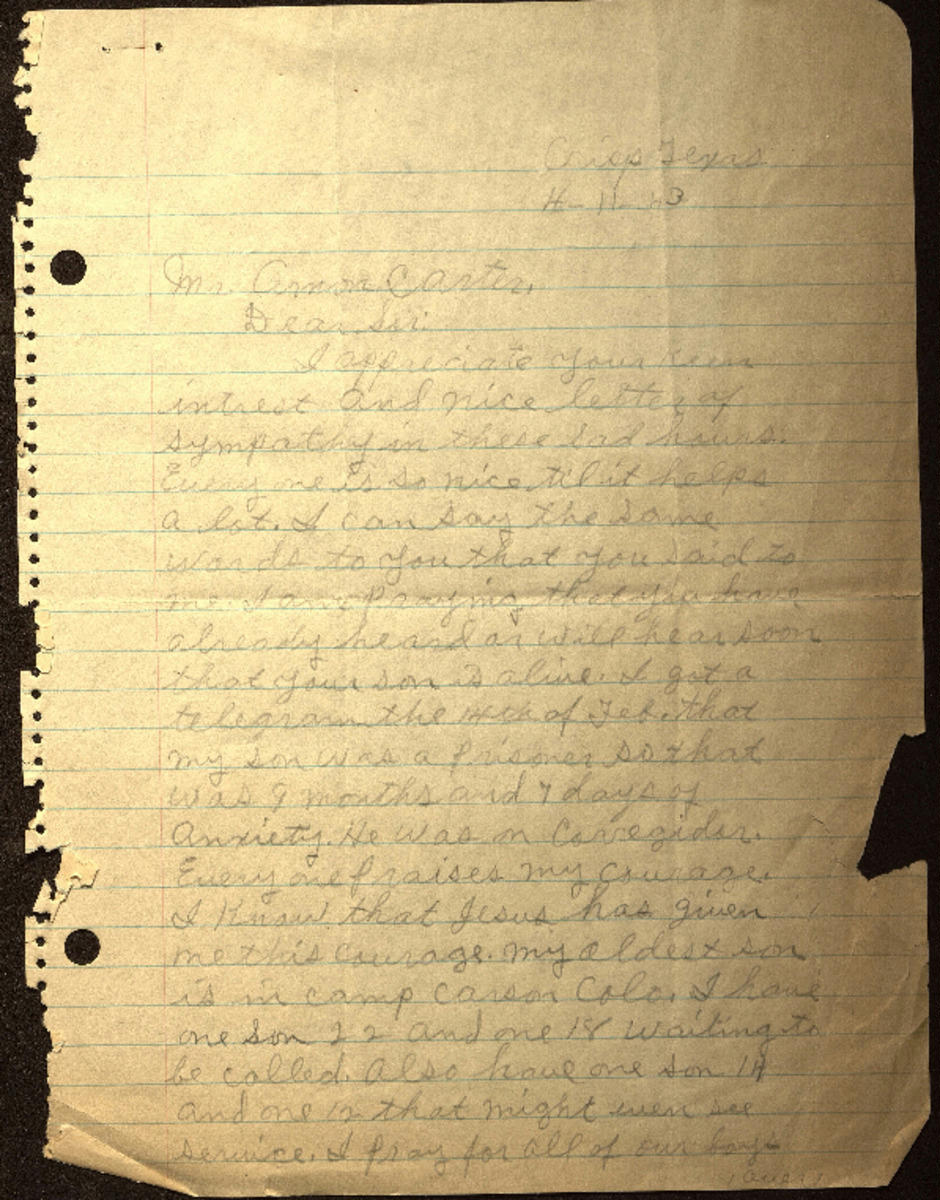 Crisp Texas
4-11-43
Mr. Amon Carter,
Dear Sir:
I appreciate your keen
intrest and nice letter of
sympathy in these sad hours.
Every one is so nice til it helps
a lot. I can say the same
words to you that you said to
me. I am praying that you have
already heard or will hear soon
that your son is alive. I got a
telegram the 14th of Feb. that
my son was a prisoner so that
was 9 months and 7 days of
Anxiety. He was on Corregidor.
Every one praises my courage.
I know that Jesus has given
me this courage. My oldest son
is in camp Carson Colo. I have
one son 22 and one 18 waiting to
be called. Also have one son 14
and one 12 that might even see
service. I pray for all of our boys
(over)